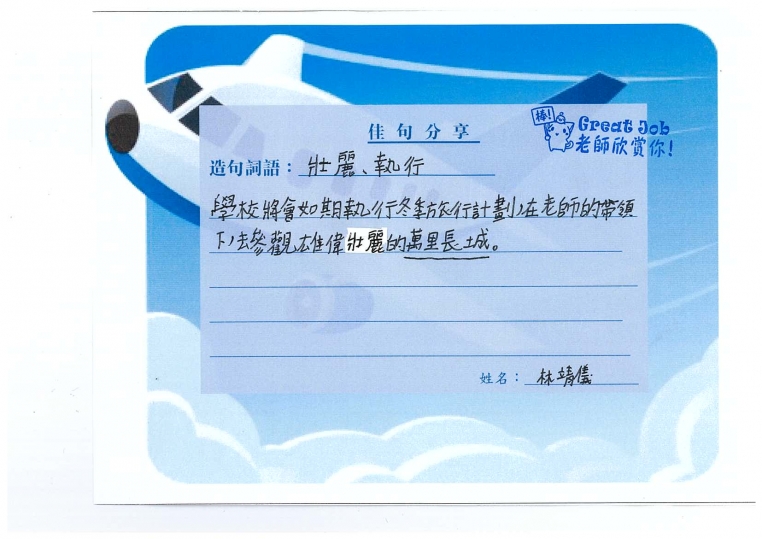 佳句分享
棒! Great Job
老師欣賞你!
造句詞語：壯麗、執行
學校將會如期執行冬季旅行計劃,在老師的帶領
下,去參觀雄偉壯麗的萬里長城。
姓名：林靖儀